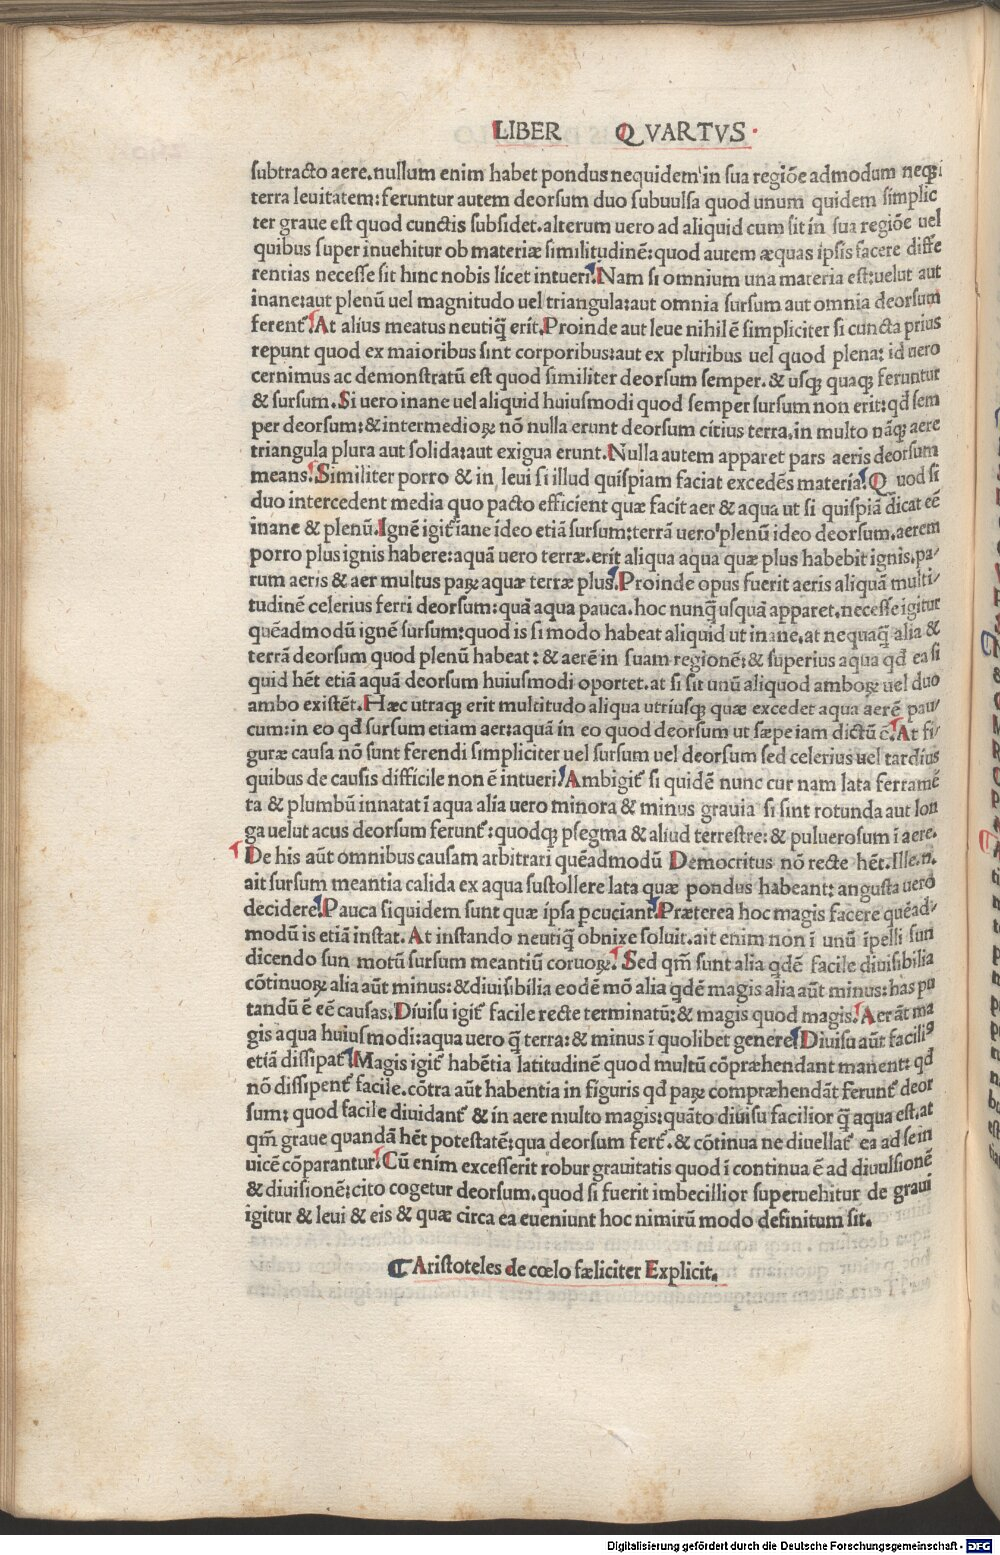 LIBER QVARTVS
subtracto aere. nullum enim habet pondus nequidem in sua regiōe admodum neqꝫ
terra leuitatem: feruntur autem deorsum duo subuulsa quod unum quidem simplic
ter graue est quod cunctis subsidet. alterum uero ad aliquid cum sit in sua regiōe uel
quibus super inuehitur ob materiæ similitudinē: quod autem æquas ipsis facere diffe
rentias necesse sit hinc nobis licet intueri. Nam si omnium una materia est: uelut aut
inane: aut plenū uel magnitudo uel triangula: aut omnia sursum aut omnia deorsum
ferent᷑. At alius meatus neutiq̄ erit. Proinde aut leue nihil ē simpliciter si cuncta prius
repunt quod ex maioribus sint corporibus: aut ex pluribus uel quod plena: id uero
cernimus ac demonstratū est quod similiter deorsum semper. & usqꝫ quaqꝫ feruntur
& sursum. Si uero inane uel aliquid huiusmodi quod semper sursum non erit: qđ sem
per deorsum: & intermedioꝝ nō nulla erunt deorsum citius terra. in multo nāqꝫ aere
triangula plura aut solida: aut exigua erunt. Nulla autem apparet pars aeris deorsum
means. Similiter porro & in leui si illud quispiam faciat excedēs materia. Quod si
duo intercedent media quo pacto efficient quæ facit aer & aqua ut si quispiā dicat eē
inane & plenū. Ignē igit᷑ iane ideo etiā sursum: terrā uero plenū ideo deorsum. aerem
porro plus ignis habere: aquā uero terræ. erit aliqua aqua quæ plus habebit ignis. pa/
rum aeris & aer multus paꝝ aquæ terræ plus. Proinde opus fuerit aeris aliquā multi/
tudinē celerius ferri deorsum: quā aqua pauca. hoc nunq̄ usquā apparet. necesse igitur
quēadmodū ignē sursum: quod is si modo habeat aliquid ut inane. at nequaq̄ alia &
terrā deorsum quod plenū habeat: & aerē in suam regionē: & superius aqua qđ ea si
quid hēt etiā aquā deorsum huiusmodi oportet. at si sit unū aliquod amboꝝ uel duo
ambo existēt. Hæc utraqꝫ erit multitudo aliqua utriusqꝫ quæ excedet aqua aerē pau/
cum: in eo qđ sursum etiam aer: aquā in eo quod deorsum ut sæpe iam dictū ē. At fi/
guræ causa nō sunt ferendi simpliciter uel sursum uel deorsum sed celerius uel tardius
quibus de causis difficile non ē intueri. Ambigit᷑ si quidē nunc cur nam lata ferramē
ta & plumbū innatat ī aqua alia uero minora & minus grauia si sint rotunda aut lon
ga uelut acus deorsum ferunt᷑: quodqꝫ psegma & aliud terrestre: & puluerosum ī aere.
De his aūt omnibus causam arbitrari quēadmodū Democritus nō recte hēt. Ille. n.
ait sursum meantia calida ex aqua sustollere lata quæ pondus habeant: angusta uero
decidere. Pauca siquidem sunt quæ ipsa ꝑcuciant. Præterea hoc magis facere quēad/
modū is etiā instat. At instando neutiq̄ obnixe soluit. ait enim non ī unū īpelli sun
dicendo sun motū sursum meantiū coruoꝝ. Sed qm̄ sunt alia qdē facile diuisibilia
cōtinuoꝝ alia aūt minus: & diuisibilia eodē mō alia qdē magis alia aūt minus: has pu
tandū ē eē causas. Diuisu igit᷑ facile recte terminatū: & magis quod magis. Aer āt ma
gis aqua huiusmodi: aqua uero q̄ terra: & minus ī quolibet genere. Diuisu aūt faciliꝰ
etiā dissipat᷑. Magis igit᷑ habētia latitudinē quod multū cōpræhendant manent: qđ
nō dissipent᷑ facile. cōtra aūt habentia in figuris qđ paꝝ compræhendāt ferunt᷑ deor
sum: quod facile diuidant᷑ & in aere multo magis: quāto diuisu facilior q̄ aqua est. at
qm̄ graue quandā hēt potestatē: qua deorsum fert᷑. & cōtinua ne diuellat᷑ ea ad se in
uicē cōparantur. Cū enim excesserit robur grauitatis quod ī continua ē ad diuulsionē
& diuisionē: cito cogetur deorsum. quod si fuerit imbecillior superuehitur de graui
igitur & leui & eis & quæ circa ea eueniunt hoc nimirū modo definitum sit.
¶ Aristoteles de cœlo fæliciter Explicit.
Digitalisierung gefördert durch die Deutsche Forschungsgemeinschaft - DFG